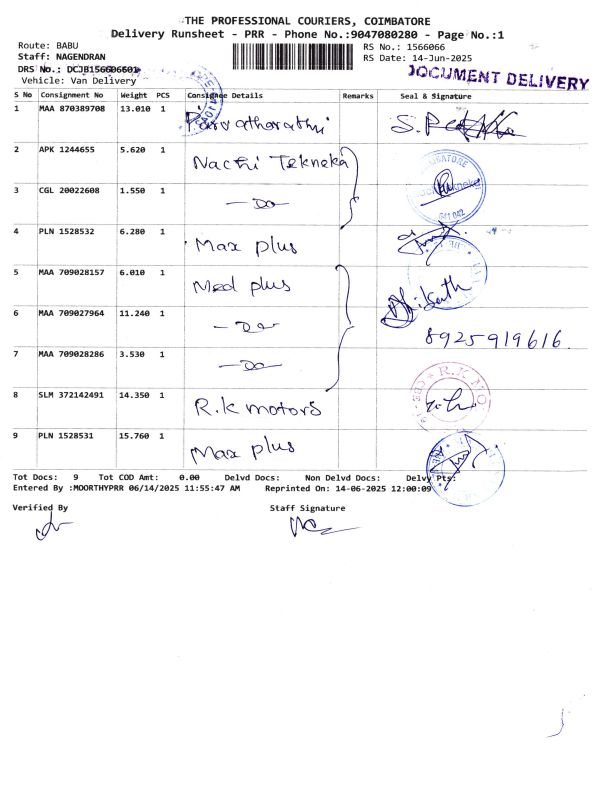 THE PROFESSIONAL COURIERS, COIMBATORE
Delivery Runsheet - PRR - Phone No.:9047080280 - Page No.:1
Route: BABU
RS No.: 1566066
Staff: NAGENDRAN
RS Date: 14-Jun-2025
DRS No.: DCJB156606601
DOCUMENT DELIVERY
Vehicle: Van Delivery
S No Consignment No Weight PCS Consignee Details Remarks Seal & Signature
1 MAA 870389708 13.010 1 Parvatharathi
2 APK 1244655 5.620 1 Nachi Tekneka
3 CGL 20022608 1.550 1 - Do -
641 042
4 PLN 1528532 6.280 1 Max plus
5 MAA 709028157 6.010 1 Med plus
6 MAA 709027964 11.240 1 - Do -
8925919616
7 MAA 709028286 3.530 1 - Do -
8 SLM 372142491 14.350 1 R.k motors
9 PLN 1528531 15.760 1 Max plus
Tot Docs: 9 Tot COD Amt: 0.00 Delvd Docs: Non Delvd Docs: Delvy Pts:
Entered By :MOORTHYPRR 06/14/2025 11:55:47 AM Reprinted On: 14-06-2025 12:00:09
Verified By Staff Signature